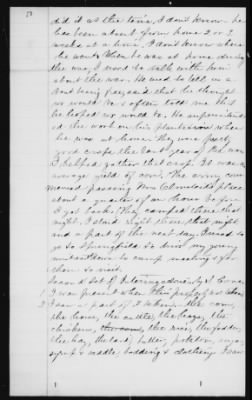 did it at the time, I don't know he
has been absent from home 2 or 3
weeks at a time, I don't know where
he went. When he was at home during
the war, I used to talk with him
about the war. He used to tell us a
bout being freed & that he thought
we would. He often told me that
he hoped we would be. He superintend
ed the work on his plantation when
he was at home. He made fair
good crops the last year of the war
I helped gather that crop. It was an
average yield of corn. The army com
menced passing Mrs place
about a quarter of an hour before
I got back. They camped there that
night, I staid right there that night
and a part of the next day. I used to
go to Springfield to drive my young
mistress down to camp meetings for
them to visit.
Second Set of Interrogatories by Comr
1 I was present when this property was taken
2 I saw a part of it taken, the corn,
the horse, the cattle, the hogs, the
chickens, the rice, the fodder,
the hay, the lard, butter, potatoes, sugar,
syrup & saddle, bedding & clothing I saw